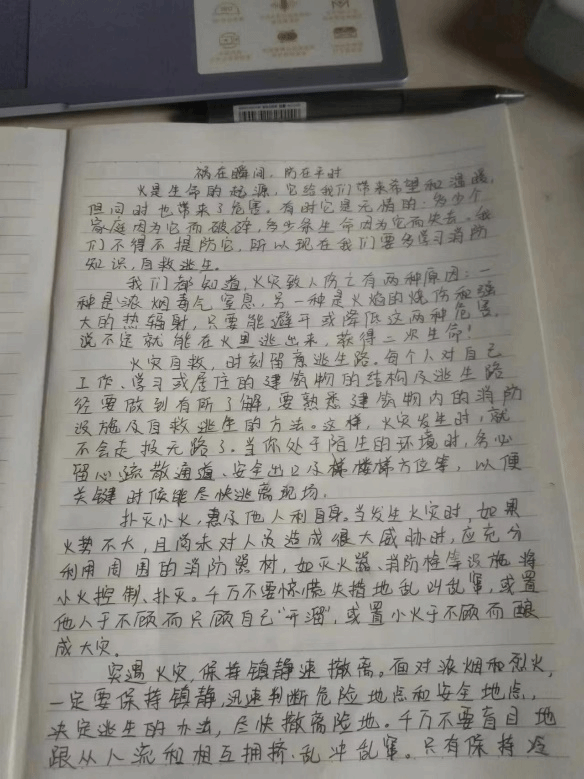 祸在瞬间,防在平时
火是生命的起源,它给我们带来希望和温暖,
但同时也带来了危害。有时它是无情的:多少个
家庭因为它而破碎,多少条生命因为它而失去。我
们不得不提防它,所以现在我们要多学习消防
知识,自救逃生。
我们都知道,火灾致人伤亡有两种原因:一
种是浓烟毒气窒息,另一种是火焰的烧伤和强
大的热辐射,只要能避开或降低这两种危害,
说不定就能在火里逃出来,获得二次生命!
火灾自救,时刻留意逃生路。每个人对自己
工作、学习或居住的建筑物的结构及逃生路
经要做到有所了解,要熟悉建筑物内的消防
设施及自救逃生的方法。这样,火灾发生时,就
不会走投无路了。当你处于陌生的环境时,务必
留心疏散通道、安全出口及楼梯方位等,以便
关键时候能尽快逃离现场。
扑灭小火,惠及他人利自身。当发生火灾时,如果
火势不大,且尚未对人员造成很大威胁时,应充分
利用周围的消防器材,如灭火器、消防栓等设施将
小火控制、扑灭。千万不要惊慌失措地乱叫乱窜,或置
他人于不顾而只顾自己“开溜”,或置小火于不顾而酿
成大灾。
突遇火灾,保持镇静速撤离。面对浓烟和烈火,
一定要保持镇静,迅速判断危险地点和安全地点,
决定逃生的办法,尽快撤离险地。千万不要盲目地
跟从人流和相互拥挤、乱冲乱窜。只有保持冷